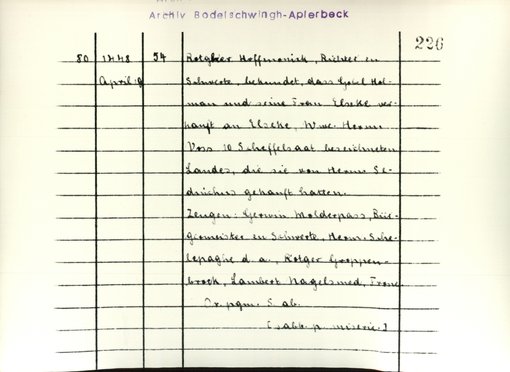 Archiv Bodelschwingh-Aplerbeck
226
80 1448 54 Rotgher Hoffmonick, Richter zu
April 9 Schwerte, bekundet, dass Gobel Hol-
man und seine Frau Elseke ver-
kauft an Elseke, Wwe. Herm.
Voss 10 Scheffelsaat bezeichneten
Landes, die sie von Herm.
gekauft hatten.
Zeugen: Gerwin Molderpass, Bür-
germeister zu Schwerte, Herm. Sche-
lepaghe d. a., Rotger Groppen-
brock, Lambert Nagelsmed, Frone
Or. pgm. S. ab.